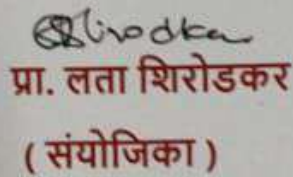 प्रा. लता शिरोडकर
( संयोजिका )